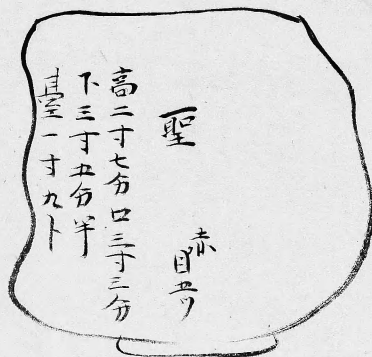 聖
赤
目五ツ
高二寸七分口三寸三分
下三寸五分半
臺一寸九卜